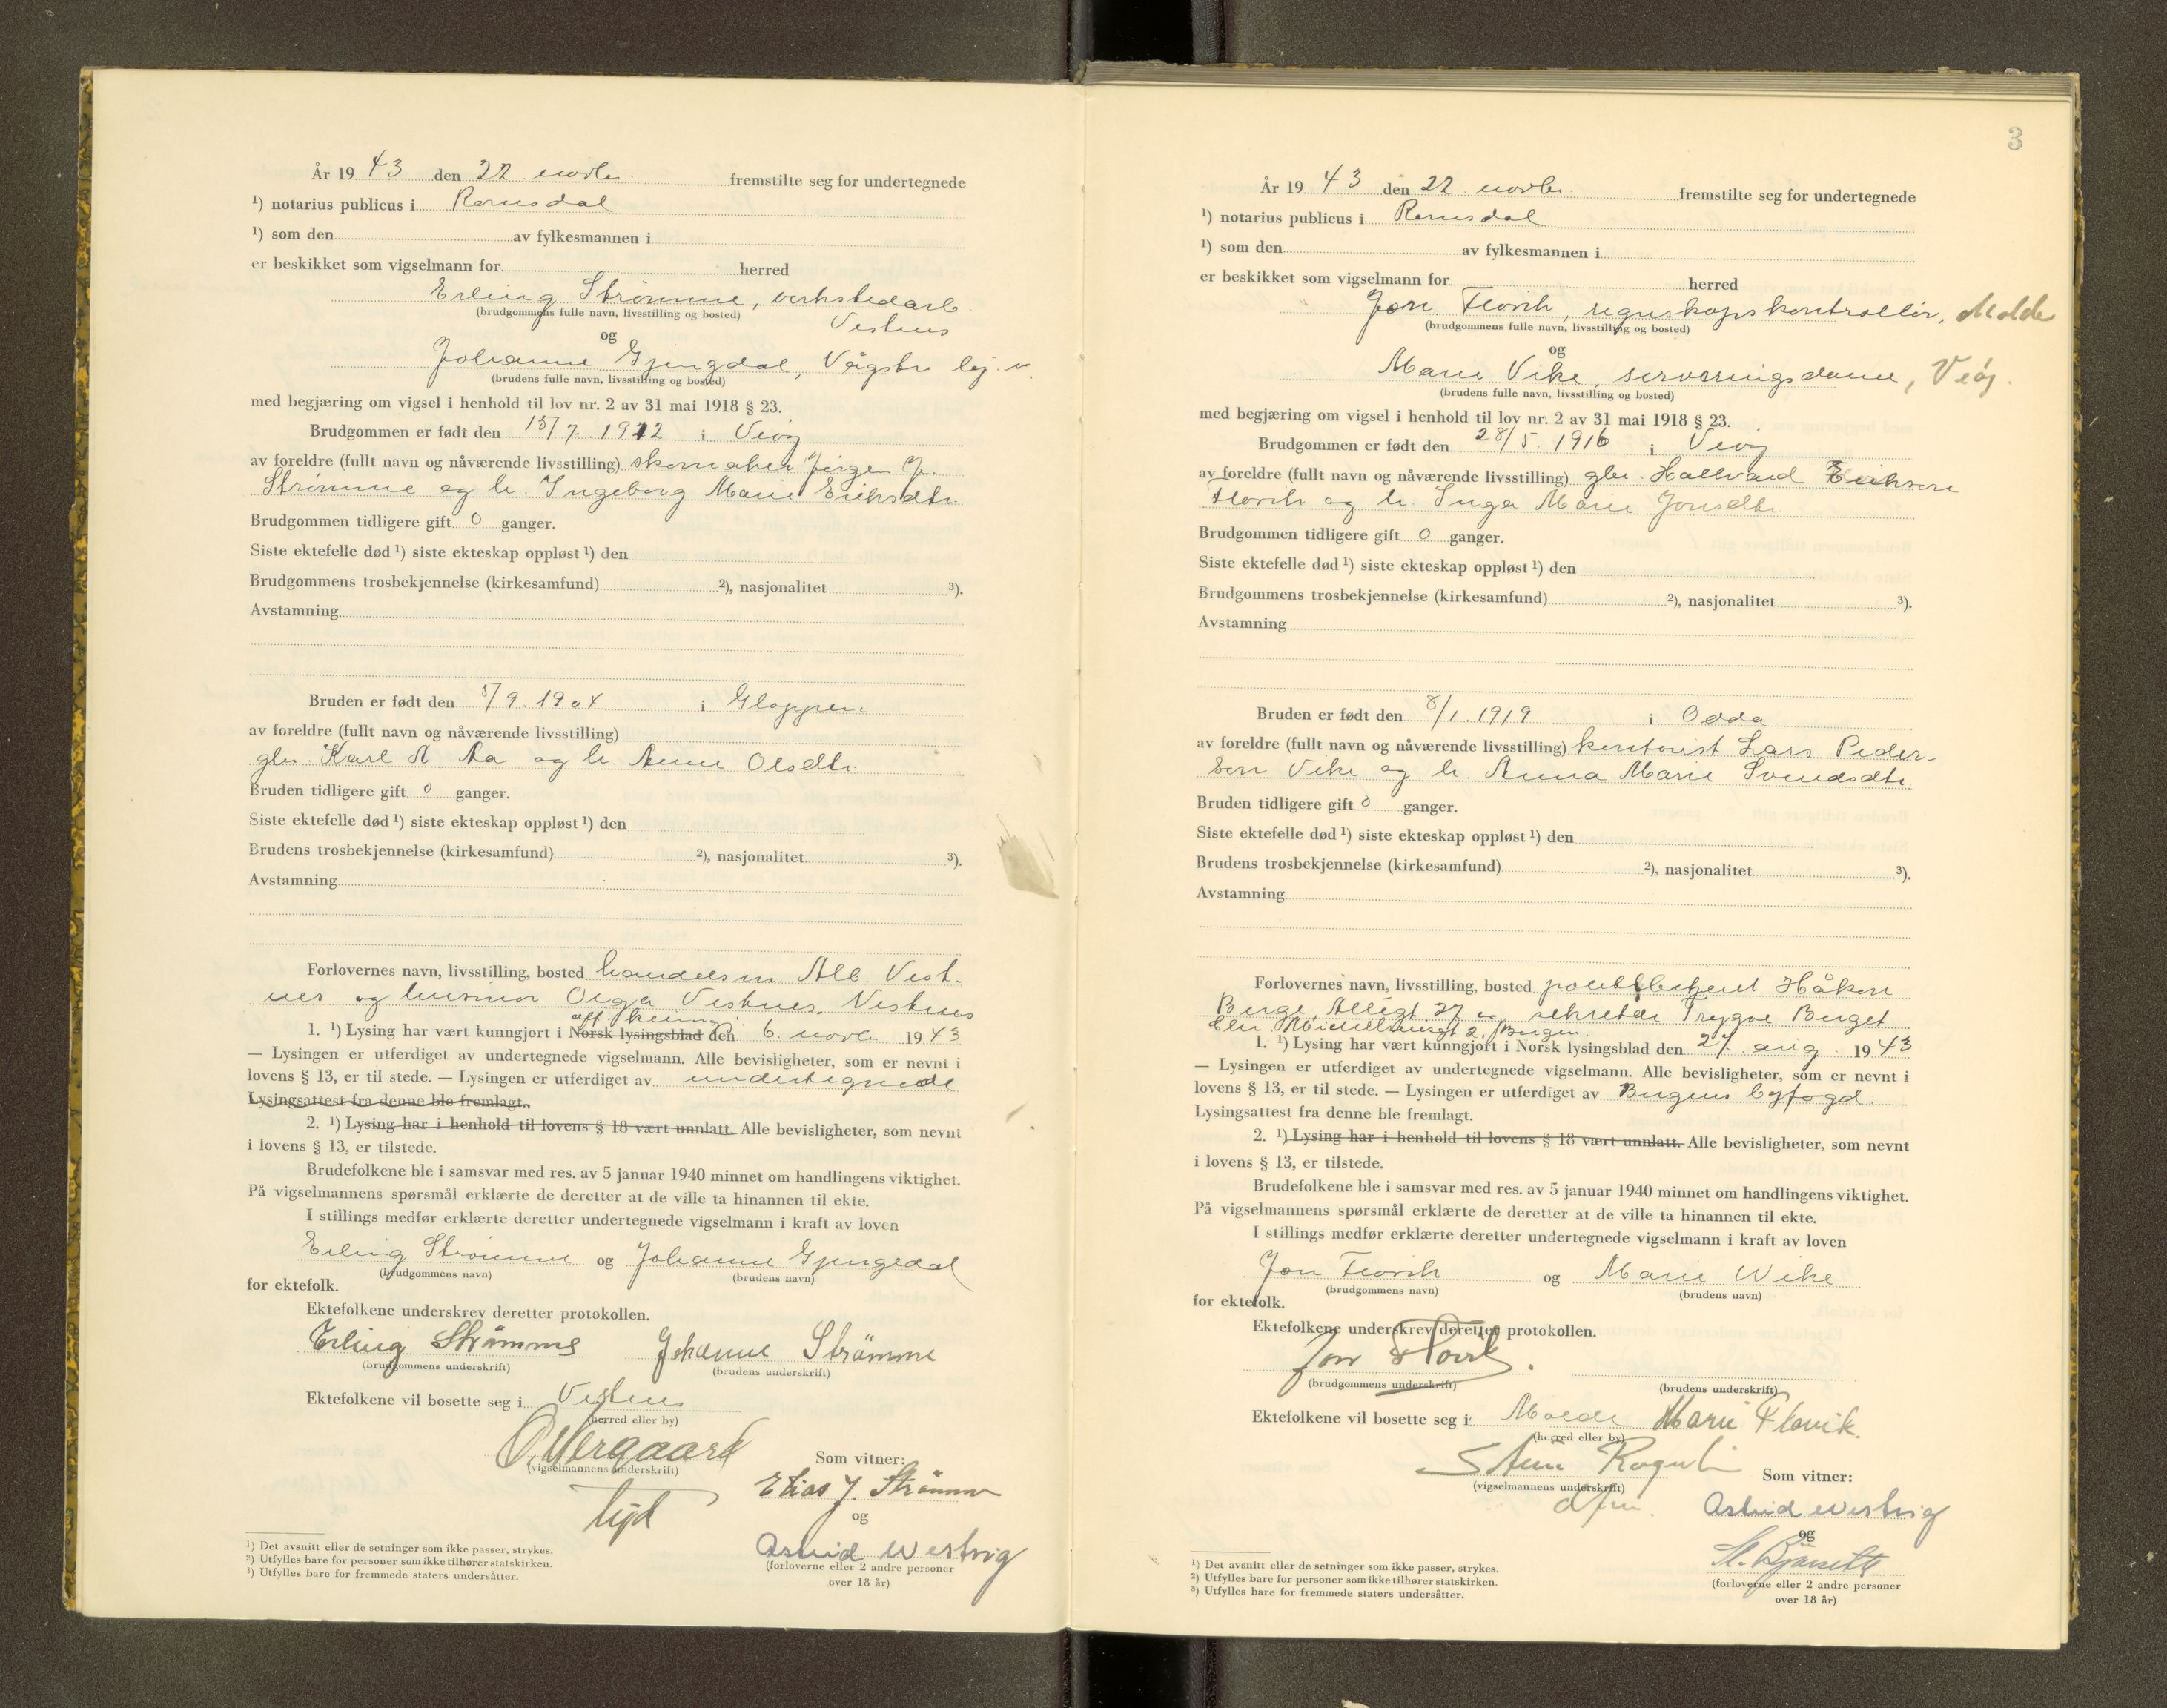 År 1943 den 22 novbr. fremstilte seg for undertegnede
¹) notarius publicus i Romsdal
¹) som den av fylkesmannen i
er beskikket som vigselmann for herred
Erling Strømme, verkstedarb.
(brudgommens fulle navn, livsstilling og bosted)
Vestnes
og
Johanne Gjengdal, Vågstr
(brudens fulle navn, livsstilling og bosted)
med begjæring om vigsel i henhold til lov nr. 2 av 31 mai 1918 § 23.
Brudgommen er født den 15/7 1912 i Veøy
av foreldre (fullt navn og nåværende livsstilling) skomaker Jørgen J.
Strømme og h. Ingeborg Marie Eriksdtr.
Brudgommen tidligere gift 0 ganger.
Siste ektefelle død ¹) siste ekteskap oppløst ¹) den
Brudgommens trosbekjennelse (kirkesamfund) ²), nasjonalitet ³).
Avstamning
Bruden er født den 5/9 1904 i Gloppen
av foreldre (fullt navn og nåværende livsstilling)
gbr. Karl A. Aa og h. Anne Olsdtr.
Bruden tidligere gift 0 ganger.
Siste ektefelle død ¹) siste ekteskap oppløst ¹) den
Brudens trosbekjennelse (kirkesamfund) ²), nasjonalitet ³).
Avstamning
Forlovernes navn, livsstilling, bosted handelsm. Alb. Vest-
nes og husmor Olga Vestnes, Vestnes
1. ¹) Lysing har vært kunngjort i Norsk lysingsblad den 6. novbr 1943
— Lysingen er utferdiget av undertegnede vigselmann. Alle bevisligheter, som er nevnt i
lovens § 13, er til stede. — Lysingen er utferdiget av undertegnede
Lysingsattest fra denne ble fremlagt.
2. ¹) Lysing har i henhold til lovens § 18 vært unnlatt. Alle bevisligheter, som nevnt
i lovens § 13, er tilstede.
Brudefolkene ble i samsvar med res. av 5 januar 1940 minnet om handlingens viktighet.
På vigselmannens spørsmål erklærte de deretter at de ville ta hinannen til ekte.
I stillings medfør erklærte deretter undertegnede vigselmann i kraft av loven
Erling Strømme og Johanne Gjengedal
(brudgommens navn) (brudens navn)
for ektefolk.
Ektefolkene underskrev deretter protokollen.
Erling Strømme Johanne Strømme
(brudgommens underskrift) (brudens underskrift)
Ektefolkene vil bosette seg i Vestnes
(herred eller by)
(vigselmannens underskrift)
Som vitner:
Elias J. Strømme
og
Astrid Westvig
(forloverne eller 2 andre personer
over 18 år)
¹) Det avsnitt eller de setninger som ikke passer, strykes.
²) Utfylles bare for personer som ikke tilhører statskirken.
³) Utfylles bare for fremmede staters undersåtter.
3
År 1943 den 22 novbr. fremstilte seg for undertegnede
¹) notarius publicus i Romsdal
¹) som den av fylkesmannen i
er beskikket som vigselmann for herred
Jon Flovik, regnskapskontrollør, Molde
(brudgommens fulle navn, livsstilling og bosted)
og
Marie Vike, serveringsdame, Veøy.
(brudens fulle navn, livsstilling og bosted)
med begjæring om vigsel i henhold til lov nr. 2 av 31 mai 1918 § 23.
Brudgommen er født den 28/5 1916 i Veøy
av foreldre (fullt navn og nåværende livsstilling) gbr. Hallvard Erikson
Flovik og h. Inga Marie Jonsdtr
Brudgommen tidligere gift 0 ganger.
Siste ektefelle død ¹) siste ekteskap oppløst ¹) den
Brudgommens trosbekjennelse (kirkesamfund) ²), nasjonalitet ³).
Avstamning
Bruden er født den 8/1 1919 i Odda
av foreldre (fullt navn og nåværende livsstilling) kontorist Lars Peder-
sen Vike og h. Anna Marie Svendsdtr.
Bruden tidligere gift 0 ganger.
Siste ektefelle død ¹) siste ekteskap oppløst ¹) den
Brudens trosbekjennelse (kirkesamfund) ²), nasjonalitet ³).
Avstamning
Forlovernes navn, livsstilling, bosted politibetjent Håkon
Berge, Allégt 27 og sekretær Trygve Berget
1. ¹) Lysing har vært kunngjort i Norsk lysingsblad den 27. aug. 1943
— Lysingen er utferdiget av undertegnede vigselmann. Alle bevisligheter, som er nevnt i
lovens § 13, er til stede. — Lysingen er utferdiget av Bergens byfogd.
Lysingsattest fra denne ble fremlagt.
2. ¹) Lysing har i henhold til lovens § 18 vært unnlatt. Alle bevisligheter, som nevnt
i lovens § 13, er tilstede.
Brudefolkene ble i samsvar med res. av 5 januar 1940 minnet om handlingens viktighet.
På vigselmannens spørsmål erklærte de deretter at de ville ta hinannen til ekte.
I stillings medfør erklærte deretter undertegnede vigselmann i kraft av loven
Jon Flovik og Marie Wike
(brudgommens navn) (brudens navn)
for ektefolk.
Ektefolkene underskrev deretter protokollen.
Jon Flovik.
(brudgommens underskrift) (brudens underskrift)
Ektefolkene vil bosette seg i Molde Marie Flovik.
(herred eller by)
(vigselmannens underskrift)
Som vitner:
Astrid Westvig
og
(forloverne eller 2 andre personer
over 18 år)
¹) Det avsnitt eller de setninger som ikke passer, strykes.
²) Utfylles bare for personer som ikke tilhører statskirken.
³) Utfylles bare for fremmede staters undersåtter.